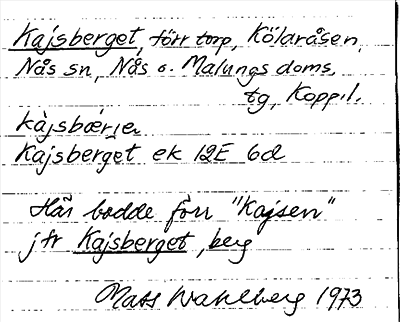 Kajsberget, förr torp, Kölaråsen,
Nås sn, Nås o. Malungs doms.
tg, Koppl.
kàjsbæ̀rjen
Kajsberget ek 12E 6d
Här bodde förr "Kajsen"
jfr Kajsberget, berg
Mats Wahlberg 1973